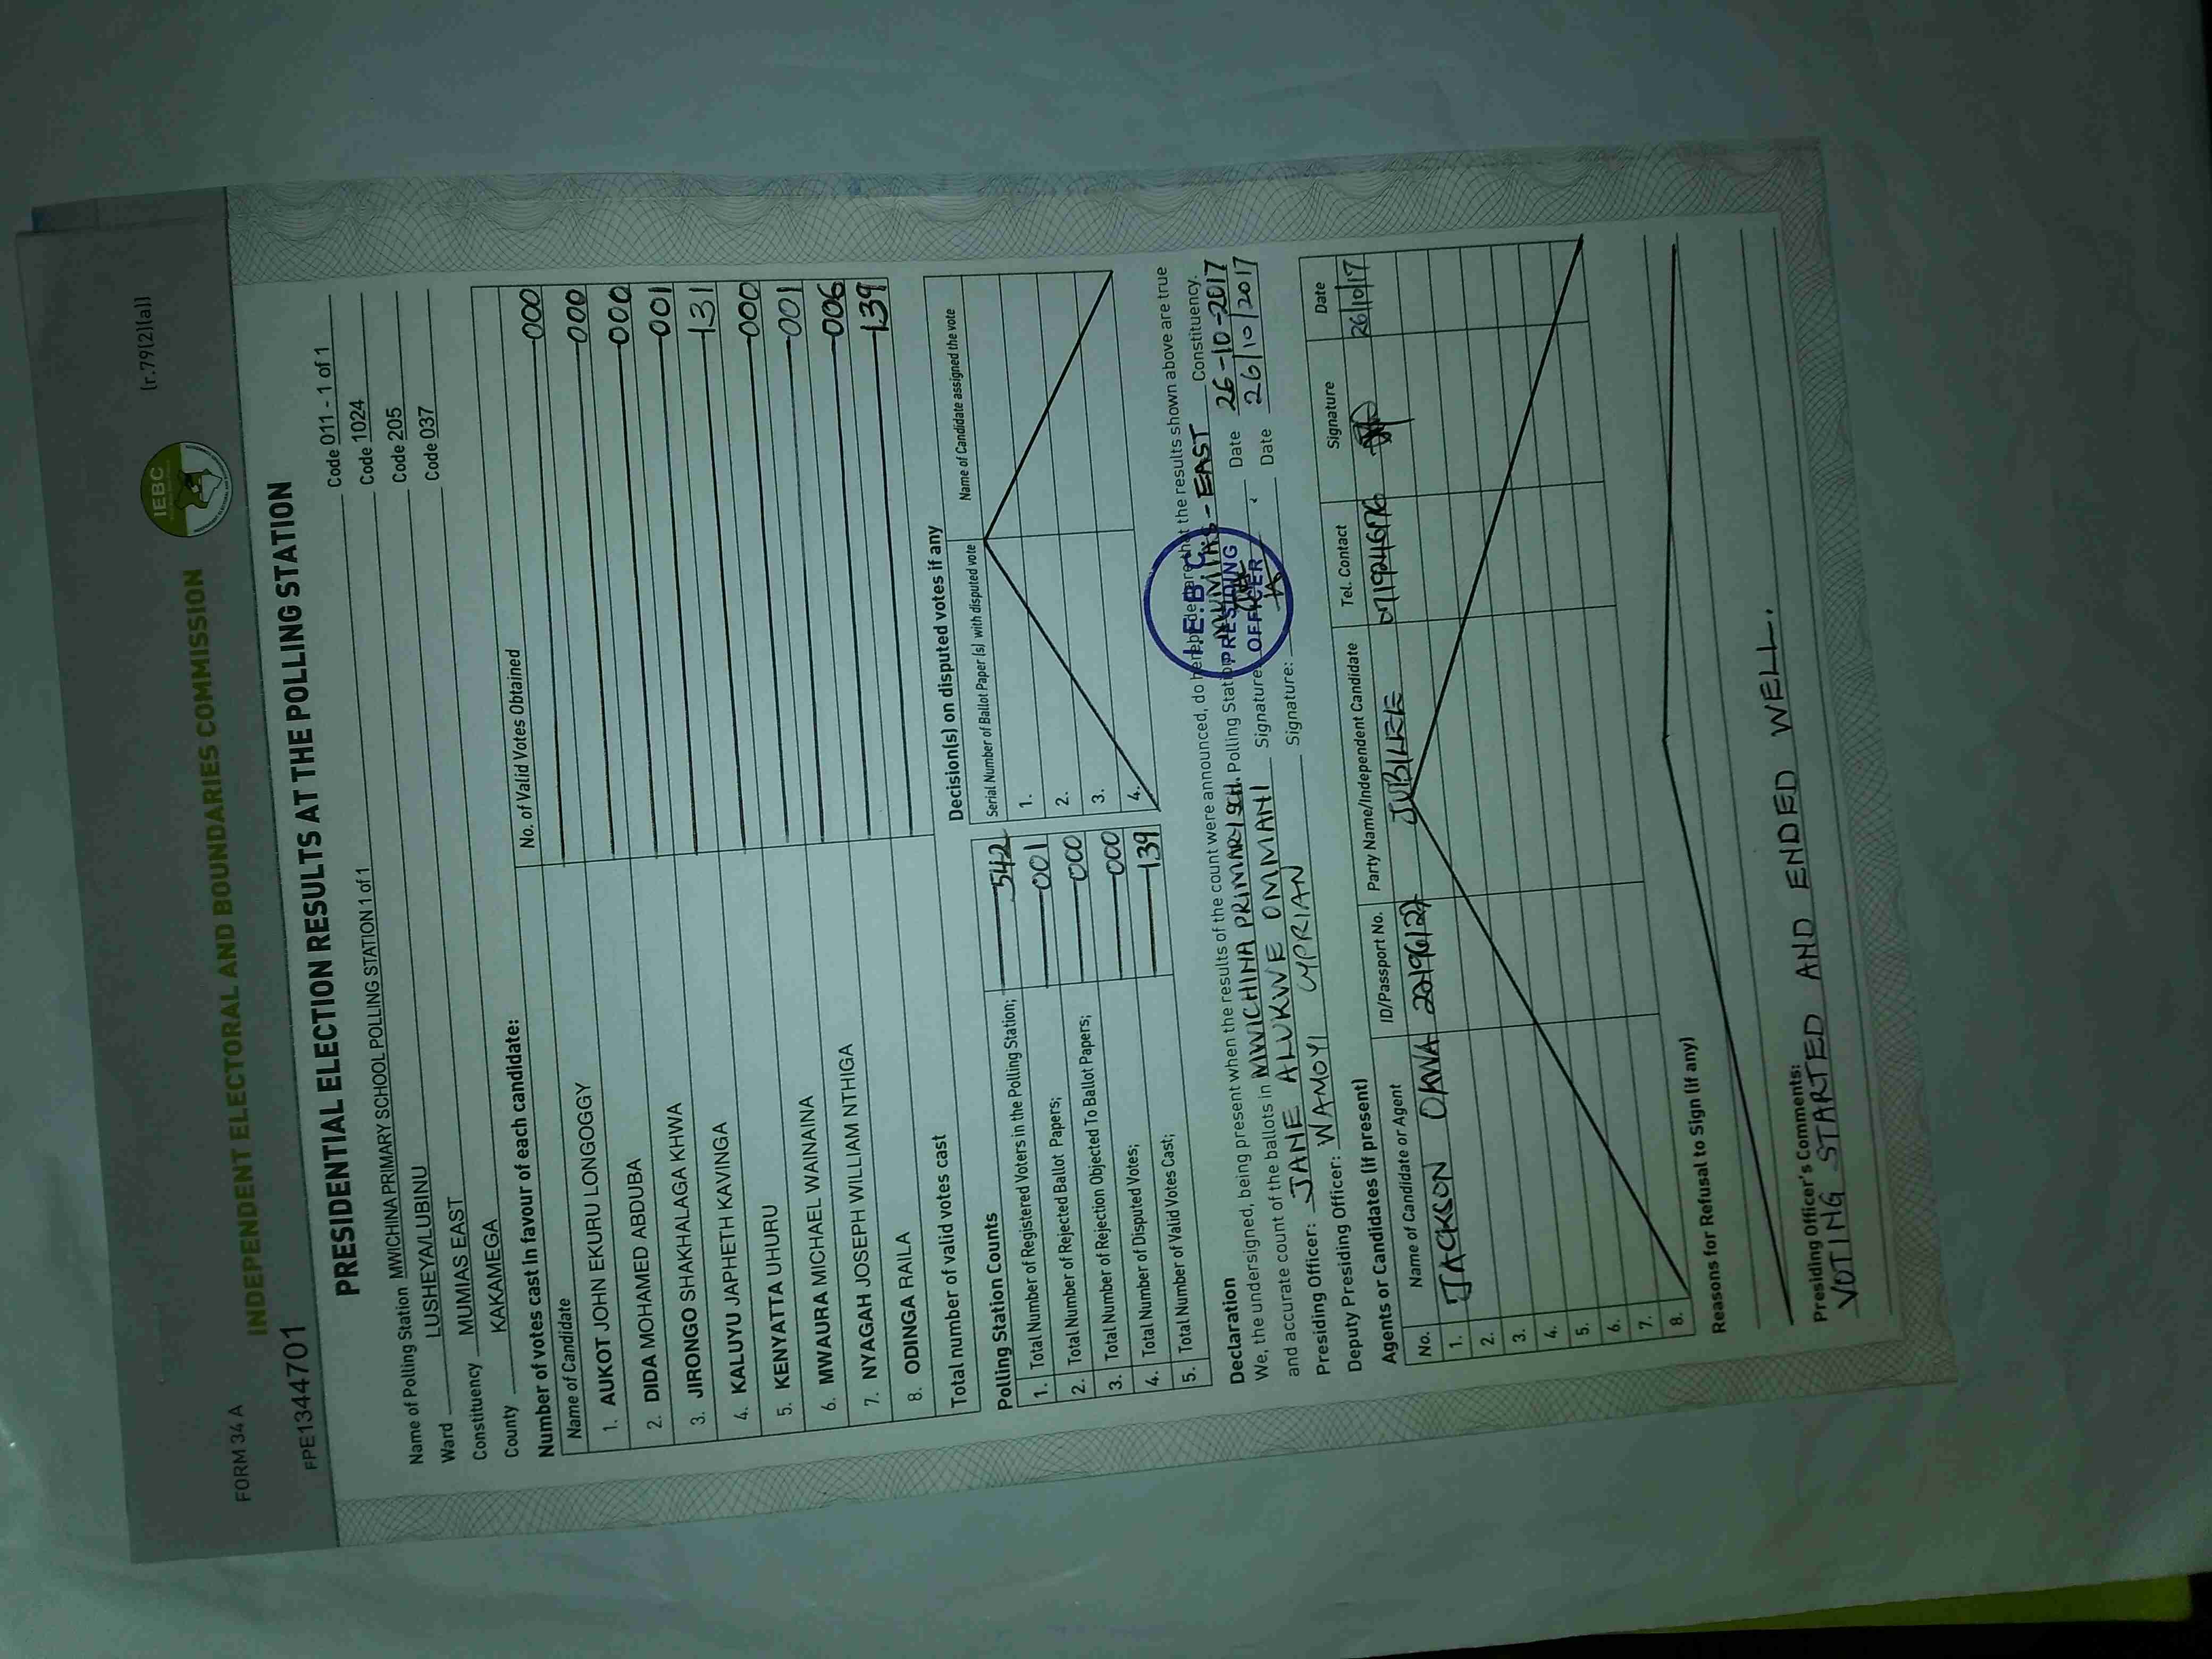 FORM 34 A
(r.79(2)(a))
INDEPENDENT ELECTORAL AND BOUNDARIES COMMISSION
IEBC
FPE1344701
PRESIDENTIAL ELECTION RESULTS AT THE POLLING STATION
Name of Polling Station MWICHINA PRIMARY SCHOOL POLLING STATION 1 of 1 Code 011 - 1 of 1
Ward LUSHEYA/LUBINU Code 1024
Constituency MUMIAS EAST Code 205
County KAKAMEGA Code 037
Number of votes cast in favour of each candidate:
Name of Candidate No. of Valid Votes Obtained
1. AUKOT JOHN EKURU LONGOGGY 000
2. DIDA MOHAMED ABDUBA 000
3. JIRONGO SHAKHALAGA KHWA 000
4. KALUYU JAPHETH KAVINGA 001
5. KENYATTA UHURU 131
6. MWAURA MICHAEL WAINAINA 000
7. NYAGAH JOSEPH WILLIAM NTHIGA 001
8. ODINGA RAILA 006
Total number of valid votes cast 139
Polling Station Counts
1. Total Number of Registered Voters in the Polling Station; 542
2. Total Number of Rejected Ballot Papers; 001
3. Total Number of Rejection Objected To Ballot Papers; 000
4. Total Number of Disputed Votes; 000
5. Total Number of Valid Votes Cast; 139
Decision(s) on disputed votes if any
Serial Number of Ballot Paper (s) with disputed vote Name of Candidate assigned the vote
1.
2.
3.
4.
Declaration
We, the undersigned, being present when the results of the count were announced, do hereby declare that the results shown above are true
and accurate count of the ballots in MWICHINA PRIMARY SCH. Polling Station MUMIAS - EAST Constituency.
Presiding Officer: JANE ALUKWE OMMANI Signature: Date 26-10-2017
Deputy Presiding Officer: WAMOYI CYPRIAN Signature: Date 26/10/2017
I.E.B.C.
PRESIDING
OFFICER
Agents or Candidates (if present)
No. Name of Candidate or Agent ID/Passport No. Party Name/Independent Candidate Tel. Contact Signature Date
1. JACKSON OKWA JUBILEE 26/10/17
2.
3.
4.
5.
6.
7.
8.
Reasons for Refusal to Sign (if any)
Presiding Officer's Comments:
VOTING STARTED AND ENDED WELL.